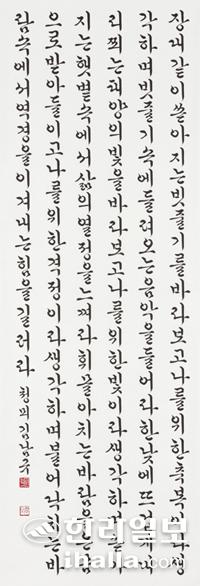 장대같이쏟아지는빗줄기를바라보고나를위한축복이라생
각하며빗줄기속에들려오는음악을들어라한낮에뜨겁게내
리쬐는태양의빛을바라보고나를위한빛이라생각하
지는햇볕속에서삶의열정을느껴라휘몰아치는바람을온몸
으로받아들이고나를위한격정이라생각하며불어닥치는바
람속에서역경을이겨내는힘을길러라 김남주
한라일보
ihalla.com